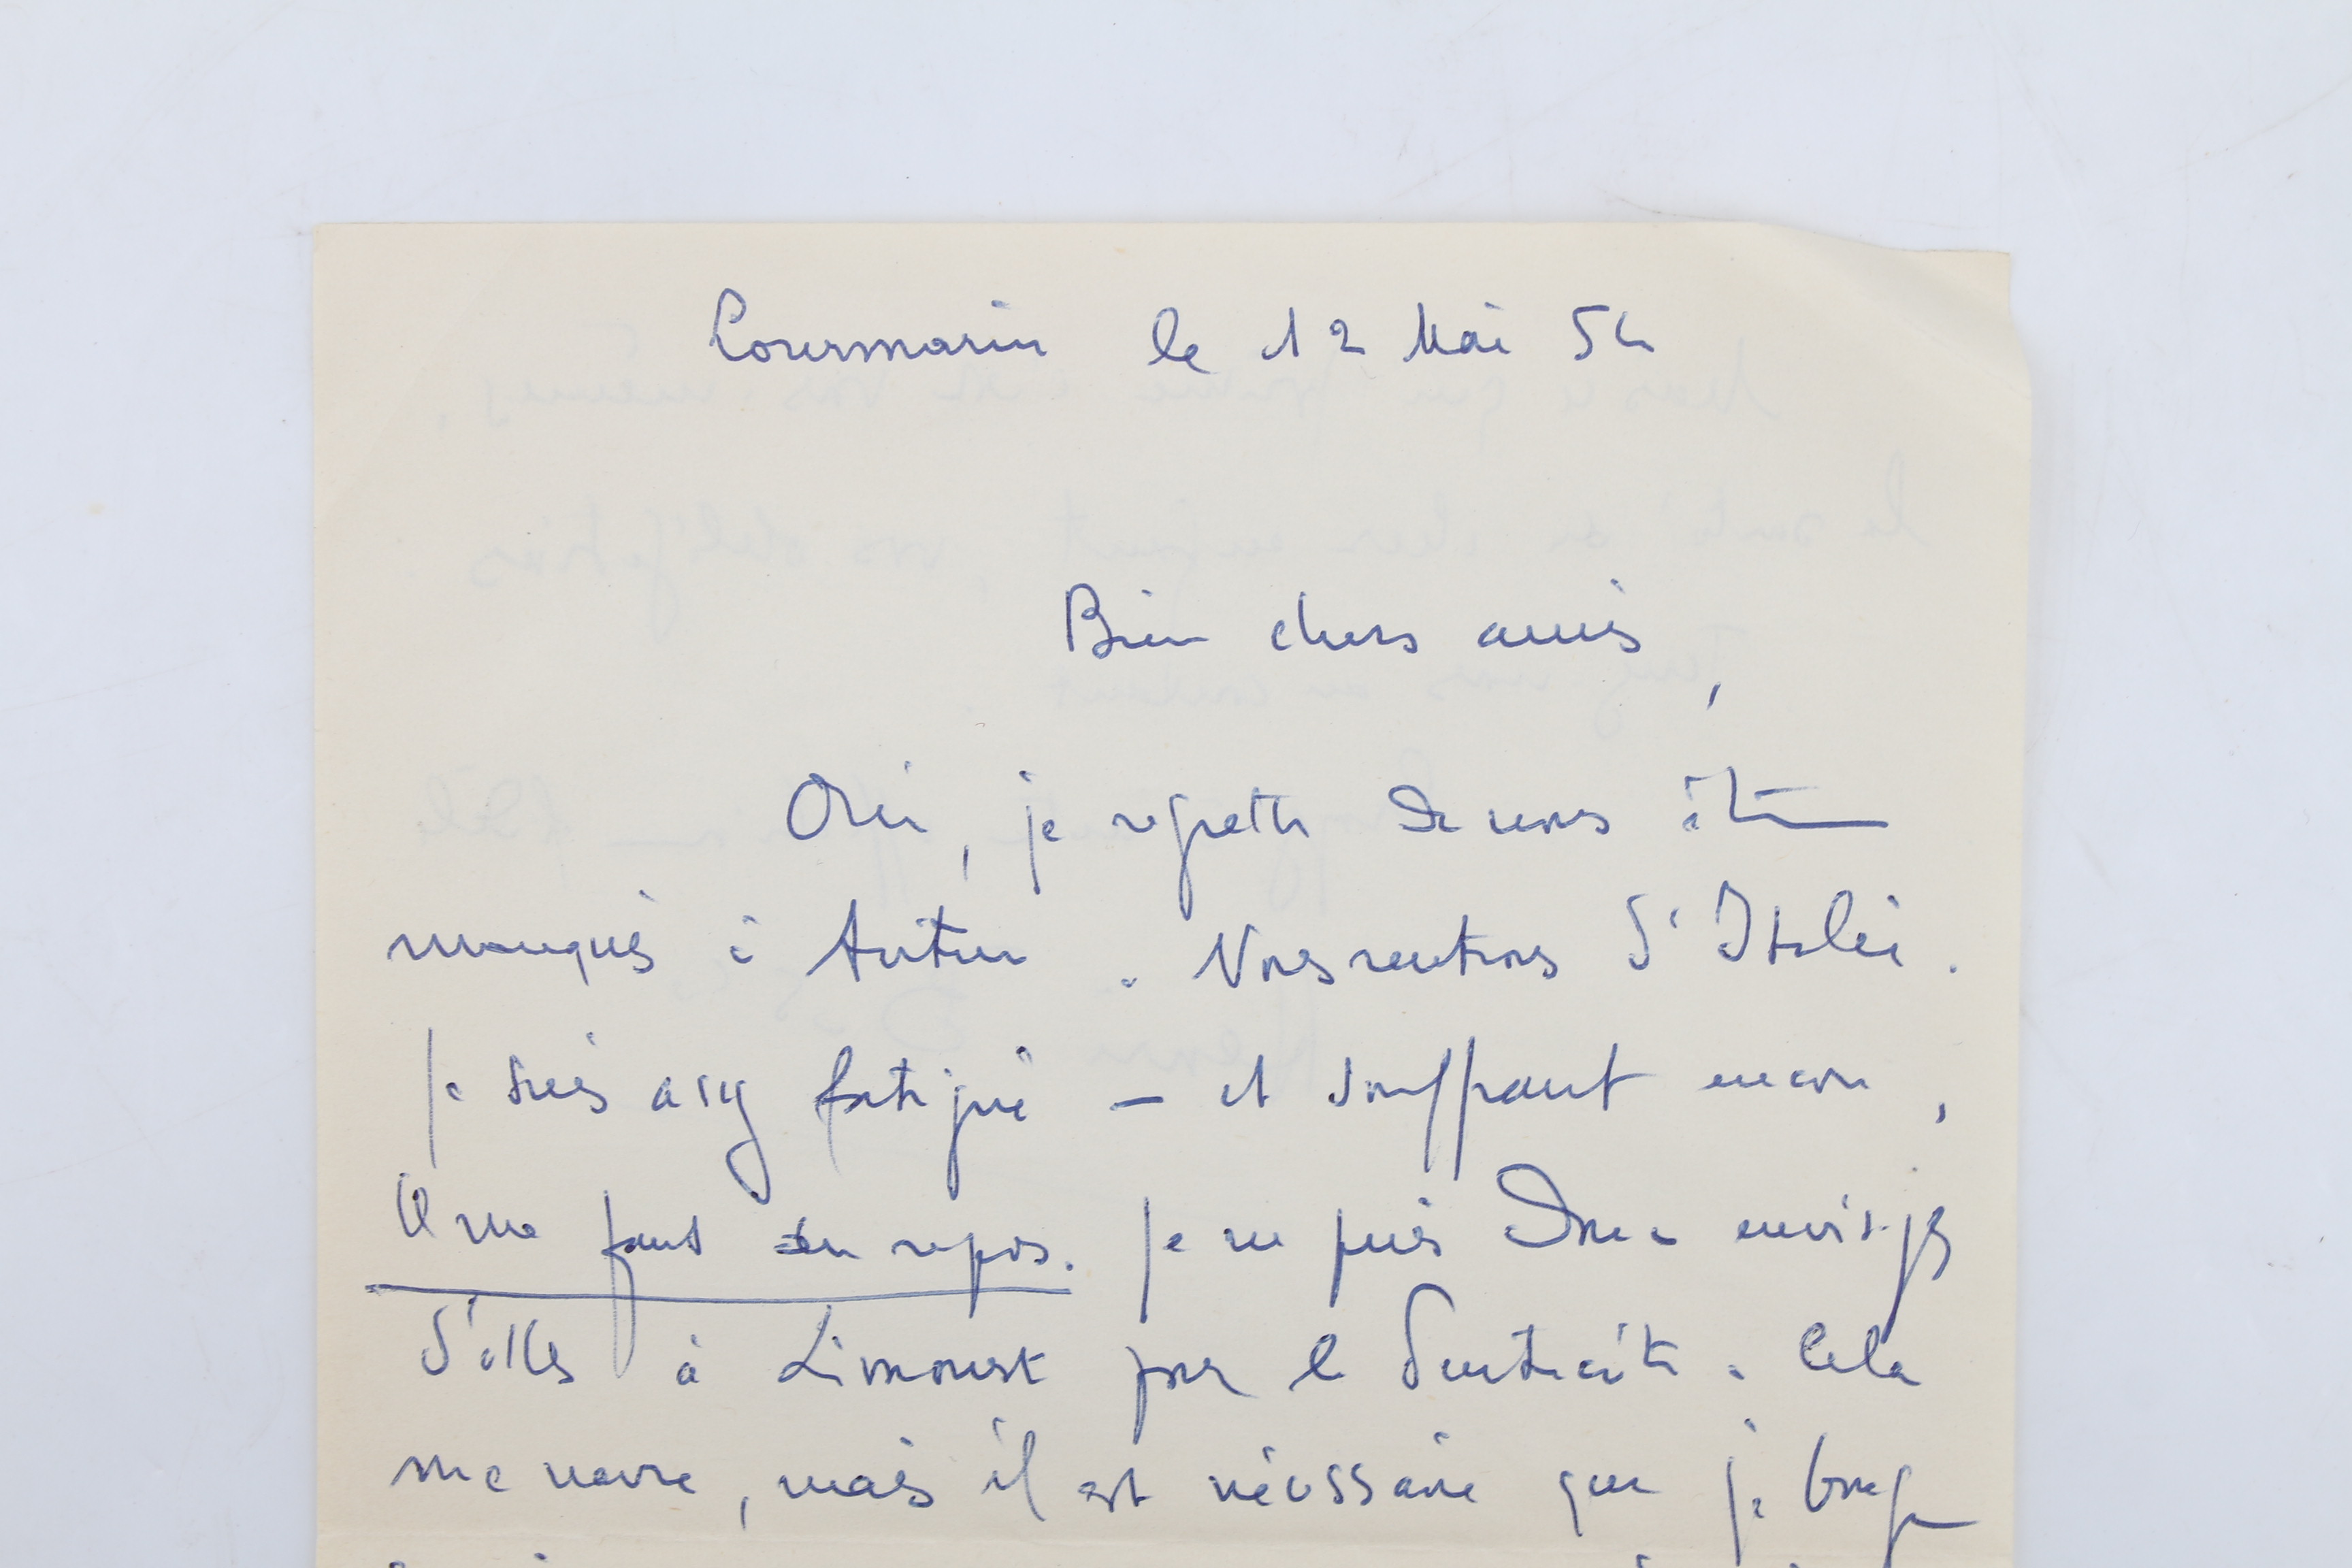 Lourmarin le 12 Mai 54
Bien chers amis,
Oui, je regrette de vous être
manqués à . Nous rentrions d'Italie.
Je suis assez fatigué — et souffrant encore,
Il me faut du repos. Je ne puis donc envisager
d'aller à Limonest pour le . Cela
me navre, mais il est nécessaire que je bouge